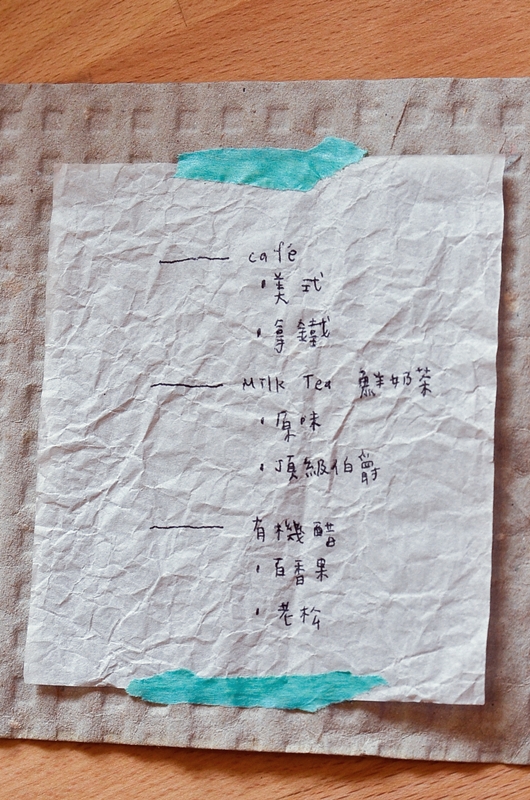 —— café
·美式
·拿鐵
—— Milk Tea 鮮奶茶
·原味
·頂級伯爵
—— 有機醋
·百香果
·老松